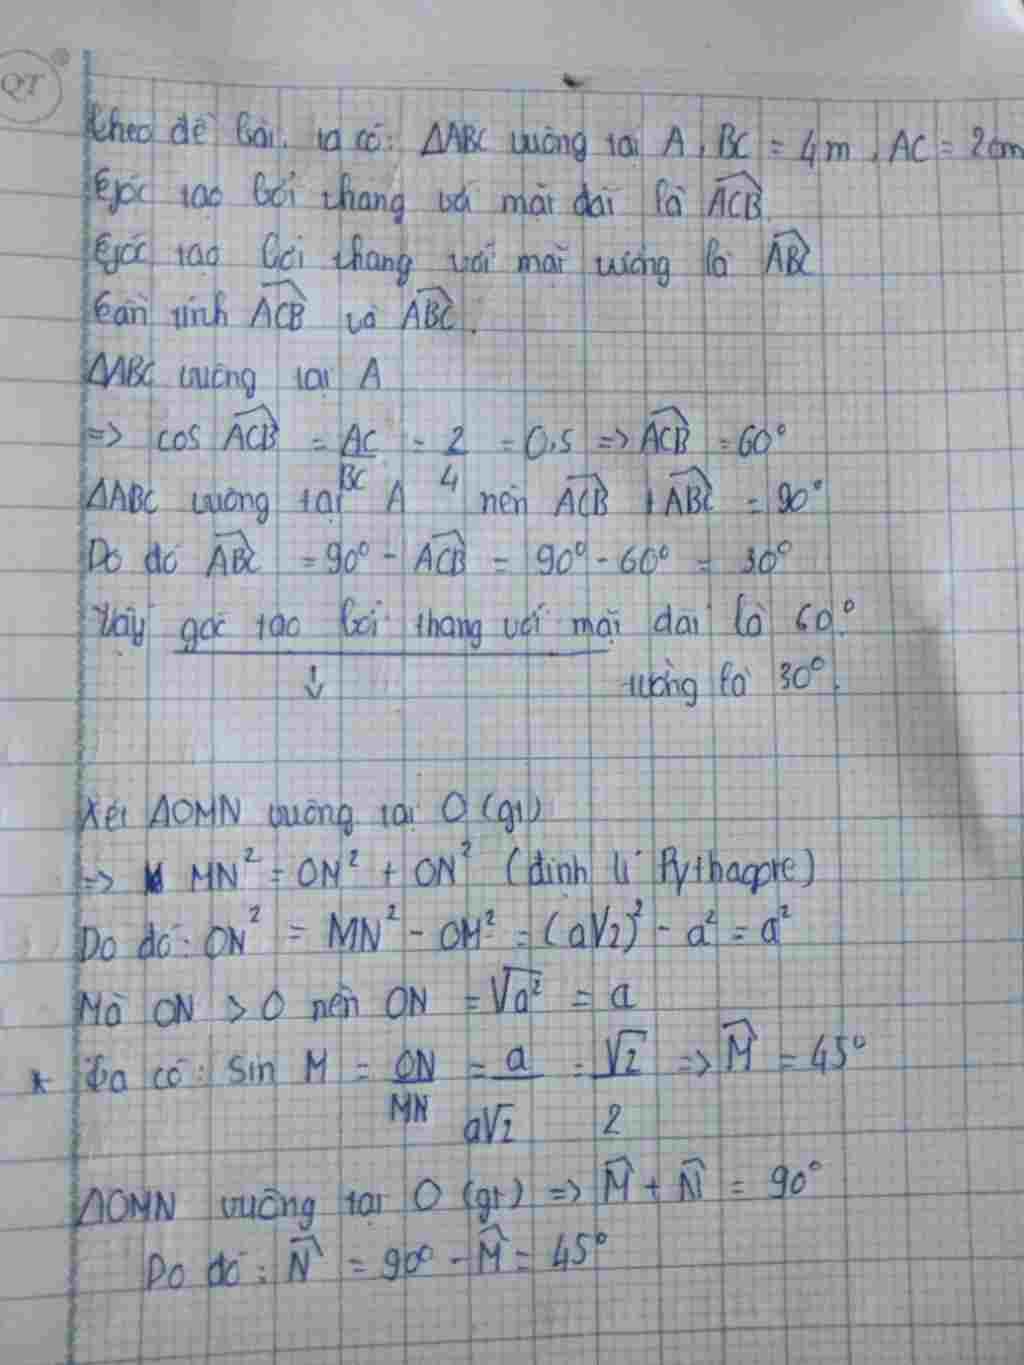 QT
Theo đề bài, ta có: ΔABC vuông tại A, BC = 4m, AC = 2cm
Góc tạo bởi thang và mặt đất là ACB
Góc tạo bởi thang với mặt tường là ABC
Cần tính ACB và ABC.
ΔABC vuông tại A
=> cos ACB = AC/BC = 2/4 = 0,5 => ACB = 60°
ΔABC vuông tại A nên ACB + ABC = 90°
Do đó ABC = 90° - ACB = 90° - 60° = 30°
Vậy góc tạo bởi thang với mặt đất là 60°.
↓ tường là 30°.
Xét ΔOMN vuông tại O (gt)
=> MN² = ON² + ON² (định lí Pythagore)
Do đó: ON² = MN² - OM² = (a√2)² - a² = a²
Mà ON > 0 nên ON = √a² = a
* Ta có: Sin M = ON/MN = a/a√2 = √2/2 => M = 45°
ΔOMN vuông tại O (gt) => M + N = 90°
Do đó: N = 90° - M = 45°